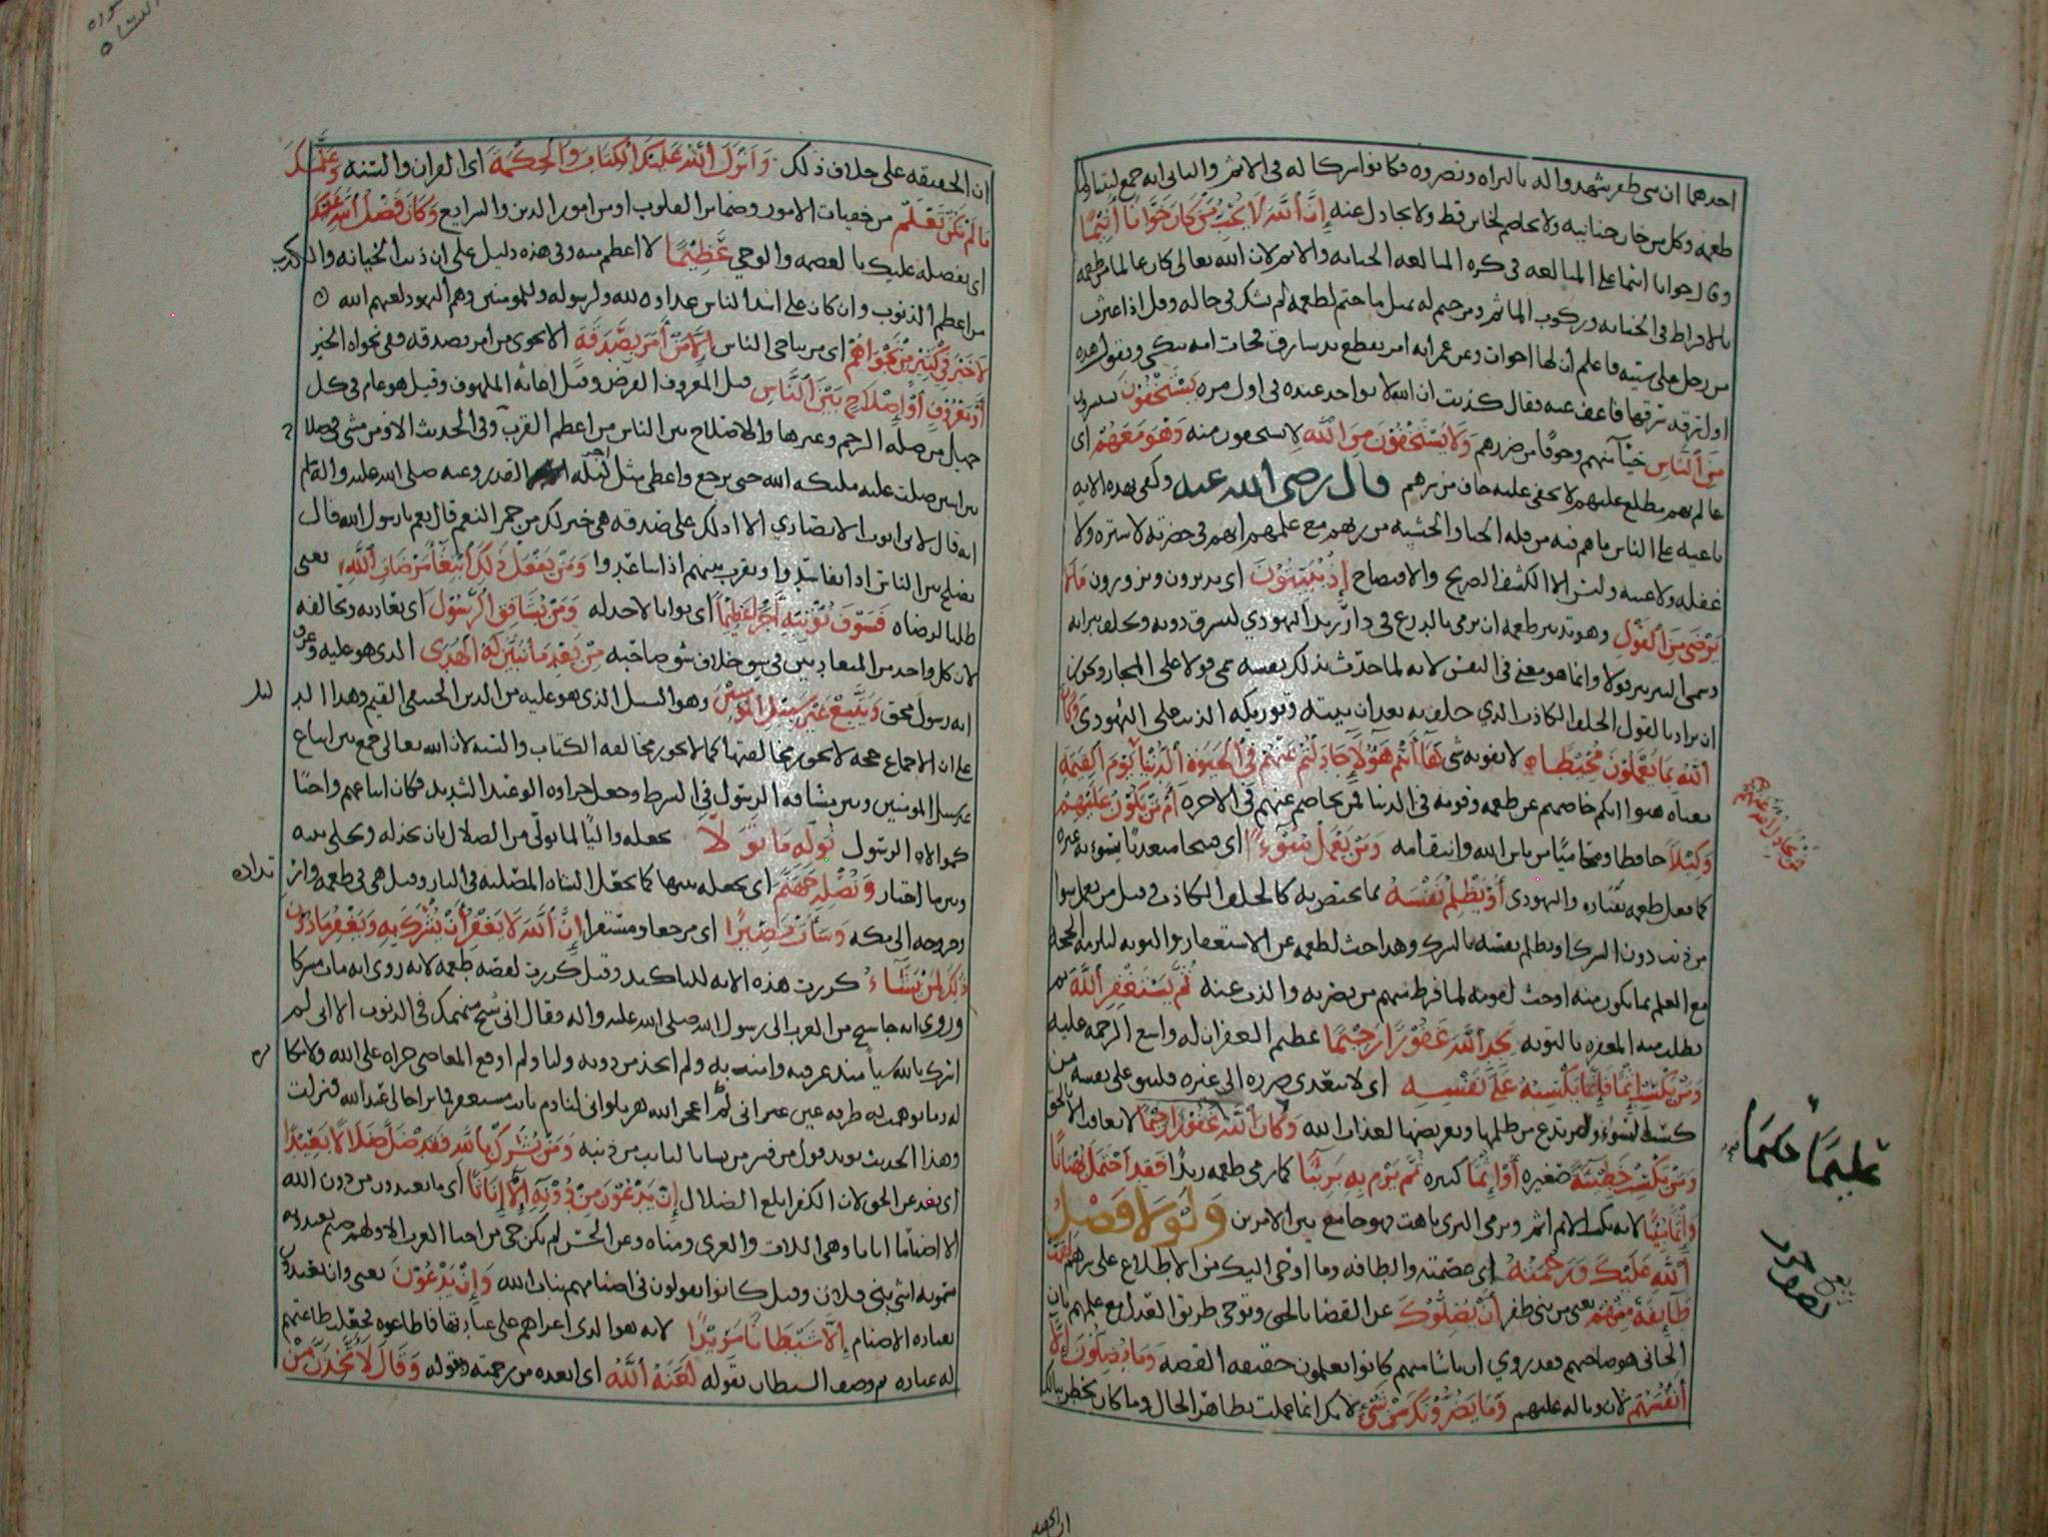 احدهما ان بنى ظفر شهدوا له بالبراه ونصروه فكانوا شركا له في الاثم والثاني انه جمع ليتناول
طعمه وكل من خان خيانته ولا يخاصم لخاين قط ولا يجادل عنه إن الله لا يحب من كان خوانا أثيما
وقال خوانا اثيما على المبالغه في كره المبالغه الخيانه والاثم لان الله تعالى كان عالما من طعمه
بالافراط في الخيانه وركوب الماثم ومن حتم له بمثل ما ختم لطعمه لم يشك في حاله وقيل اذا عثرت
من رجل على سيئه فاعلم ان لها اخوات وعن عمر انه امر بقطع يد سارق فجات امه تبكي وتقول هذه
اول سرقه سرقها فاعف عنه فقال كذبت ان الله لا يواخذ عنده في اول مره يستخفون يستترون
من الناس حيآ منهم وخوفا من ضررهم ولا يستخفون من الله لا يستحيون منه وهو معهم اى
عالم بهم مطلع عليهم لا يخفى عليه خاف من سرهم قال رضى الله عنه وكفى بهذه الايه
ناعيه على الناس ما هم فيه من قله الحيا والخشيه من ربهم مع علمهم انهم في حضرته لا ستره ولا
غفله ولا غيبه وليس الا الكشف الصريح والافتضاح إذ يبيتون اى يدبرون ويزورون ما لا
يرضى من القول وهو تدبير طعمه ان يرمى بالدرع في دار زيد اليهودي ليسرق دونه ويحلف ببراته
وسمى التدبير قولا وانما هو معنى في النفس لانه لما حدث بذلك نفسه سمى قولا على المجاز ويجوز
ان يراد بالقول الحلف الكاذب الذي حلف به بعد ان بيته وتوريكه الذنب على اليهودى وكان
الله بما يعملون محيطا لا يفوته شى هآ أنتم هؤلاء جادلتم عنهم في الحيوة الدنيا يوم القيمه
معناه هبوا انكم خاصمتم عن طعمه وقومه في الدنيا فمن يخاصم عنهم في الاخره أم من يكون عليهم
وكيلا حافظا ومحاميًا من باس الله وانتقامه ومن يعمل سوءا اى قبيحا متعديا يسوء به غيره
كما فعل طعمه بقتاده واليهودى أو يظلم نفسه بما يختص به كالحلف الكاذب وقيل من يعمل سوا
من ذنب دون الشرك او يظلم نفسه بالشرك وهذا حث لطعمه عن الاستغفار والتوبه لتلزمه الحجه
مع العلم بما يكون منه او حث لقومه لما فرط منهم من نصرته والذب عنه ثم يستغفر الله ثم
يطلب منه المغفره بالتوبه يجد الله غفورا رحيما عظيم الغفران له واسع الرحمه عليه
ومن يكسب إثما فإنما يكسبه على نفسه اى لا يتعدى ضرره الى غيره فليبق على نفسه من
كسب السوء ولم يرتدع من ظلمها وتعريضها لعذاب الله وكان الله غفورا رحيما لا يعاقب الا بالحق
ومن يكسب خطيئة صغيره أو إثما كبيره ثم يرم به بريئا كما رمى طعمه زيدًا فقد احتمل بهتانا
وإثما مبينا لانه بكسب الاثم اثم وبرمى البرى باهت فهو جامع بين الامرين ولولا فضل
الله عليك ورحمته اى عصمته والطافه وما اوحى اليك من الاطلاع على سرهم لهمت
طائفة منهم يعنى من بنى ظفر أن يضلوك عن القضا بالحق وتوخى طريق العدل مع علمهم بان
الجانى هو صاحبهم فقد روي ان ناسا منهم كانوا يعلمون حقيقه القصه وما يضلون إلا
أنفسهم لان وباله عليهم وما يضرونك من شئ لانك انما عملت بظاهر الحال وما كان يخطر ببالك
فمن يجادل الله عنهم
عليما حكيما
ان الحقيقه
ان الحقيقه على خلاف ذلك وأنزل الله عليك الكتاب والحكمة اى القران والسنه وعلمك
ما لم تكن تعلم من خفيات الامور وضماير القلوب او من امور الدين والشرايع وكان فضل الله عليك
اى بفضله عليك بالعصمه والوحي عظيما لا اعظم منه وفي هذه دليل على ان ذنب الخيانه والكذب
من اعظم الذنوب وان كان على اشد الناس عداوه لله ولرسوله وللمومنين وهم اليهود لعنهم الله
لا خير في كثير من نجواهم اى من تناجى الناس إلا من أمر بصدقة الا نجوى من امر بصدقه ففي نجواه الخير
أو معروف أو إصلاح بين الناس قيل المعروف القرض وقيل اغاثه الملهوف وقيل هو عام في كل
جميل من صله الرحم وغيرها والاصلاح بين الناس من اعظم القرب وفي الحديث الا ومن مشى في صلاح
بين اثنين صلت عليه مليكه الله حتى يرجع واعطى مثل اجر ليله القدر وعنه صلى الله عليه واله
انه قال لابى ايوب الانصاري الا ادلك على صدقه هي خير لك من حمر النعم قال نعم يا رسول الله قال
تصلح بين الناس اذا تفاسدوا وتقرب بينهم اذا تباعدوا ومن يفعل ذلك ابتغاء مرضات الله يعنى
طلبا لرضاه فسوف نؤتيه أجرا عظيما اى ثوابا لا حد له ومن يشاقق الرسول اى يعاديه ويخالفه
لان كل واحد من المتعاديين في شق خلاف شق صاحبه من بعد ما تبين له الهدى الذى هو عليه وعرف
انه رسول محق ويتبع غير سبيل المؤمنين وهو السبيل الذى هو عليه من الدين الحنيفى القيم وهذا
على ان الاجماع حجه لا يجوز مخالفتها كما لا يجوز مخالفه الكتاب والسنه لان الله تعالى جمع بين اتباع
غير سبيل المومنين وبين مشاقه الرسول في الشرط وجعل جزاوه الوعيد الشديد فكان اتباعهم واجبًا
كموالاه الرسول نوله ما تولى نجعله واليًا لما تولى من الضلال بان نخذله ونخلى بينه
وبين ما اختار ونصله جهنم
وخروجه الى مكه وسآءت مصيرا اى مرجعا ومستقرا إن الله لا يغفر أن يشرك به ويغفر ما دون
ذلك لمن يشآء كررت هذه الايه للتاكيد وقيل كررت لقصه طعمه لانه روى انه مات مشركا
وروي انه جا شيخ من العرب الى رسول الله صلى الله عليه واله فقال انى شيخ منهمك في الذنوب الا انى لم
اشرك بالله شيا منذ عرفته وامنت به ولم اتخذ من دونه وليا ولم اوقع المعاصى جراه على الله ولا مكابره
له وما توهمت طرفه عين انى اعجز الله هربا وانى لنادم تايب مستغفر فما ترا حالى عند الله فنزلت
وهذا الحديث يويد قول من فسر من يشا بالتايب من ذنبه ومن يشرك بالله فقد ضل ضلالا بعيدا
اى بعد عن الحق لان الكفر ابلغ الضلال إن يدعون من دونه إلا إناثا اى ما يعبدون من دون الله
الا اصنامًا اناثا وهى اللات والعزى ومناه وعن الحسن لم يكن حى من احيا العرب الا ولهم صنم يعبدونه
يسمونه انثى بنى فلان وقيل كانوا يقولون في اصنامهم بنات الله وإن يدعون يعنى وان يعبدون
بعباده الاصنام إلا شيطانا مريدا لانه هو الذى اغراهم على عبادتها فاطاعوه فجعلت طاعتهم
له عباده ثم وصف الشيطان بقوله لعنه الله اى ابعده من رحمته وقوله وقال لأتخذن من